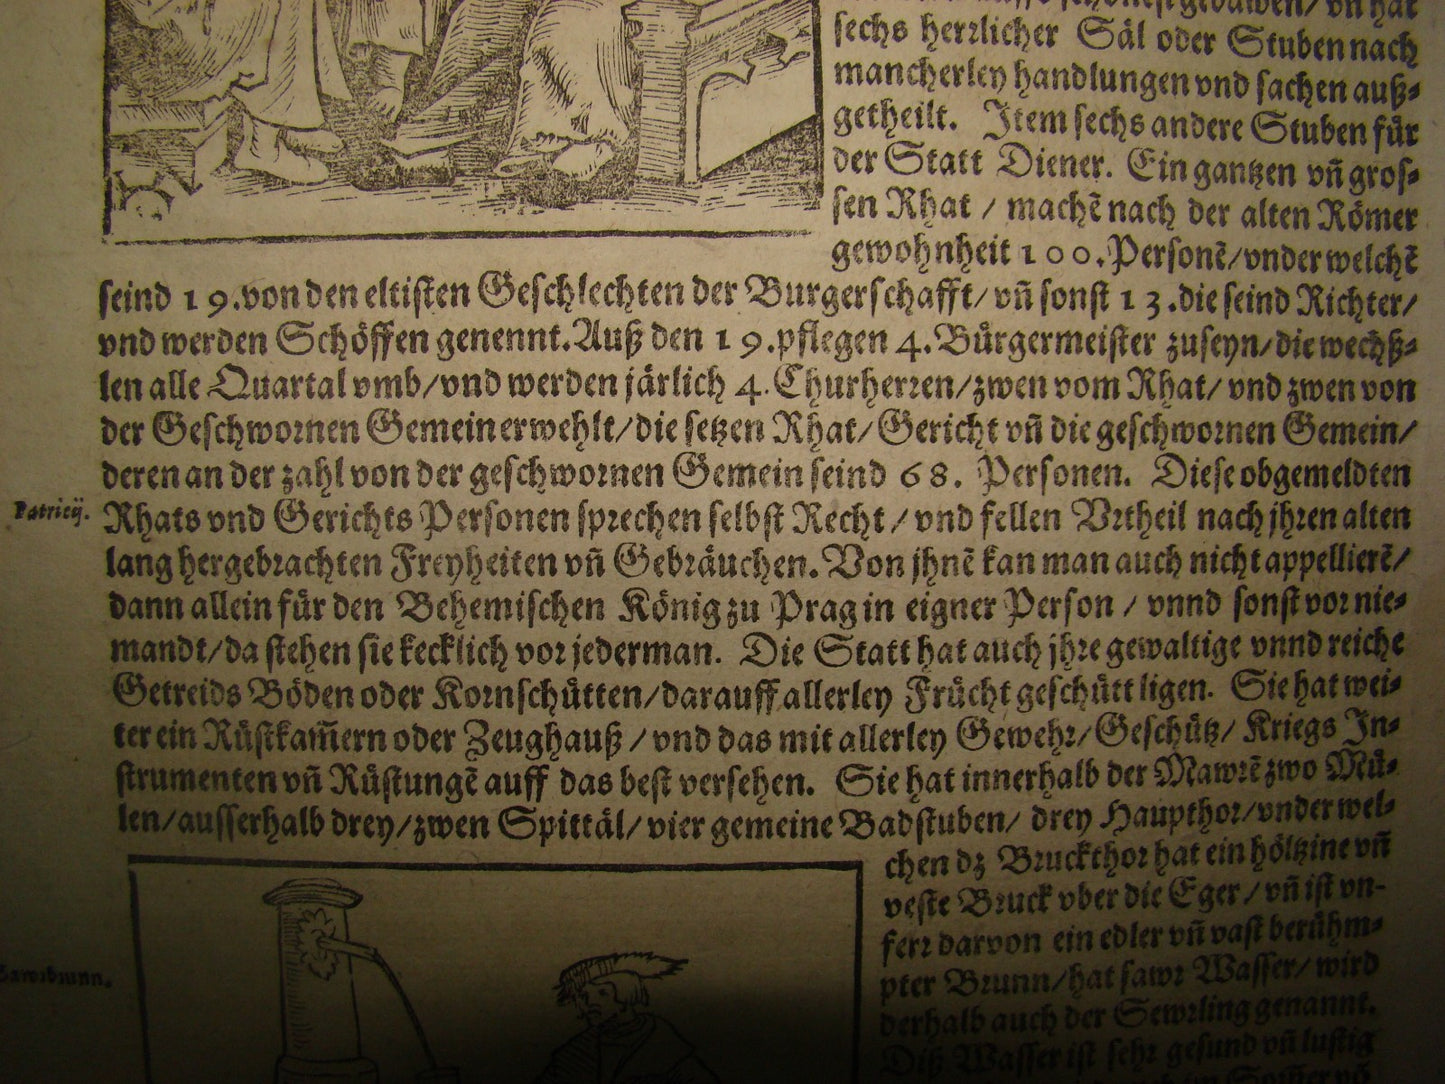 sechs herꝛlicher Säl oder Stuben nach
mancherley handlungen vnd sachen auß⸗
getheilt. Item sechs andere Stuben für
der Statt Diener. Ein gantzen vñ gros⸗
sen Rhat / machẽ nach der alten Römer
gewohnheit 100. Personẽ/vnder welchẽ
seind 19. von den eltisten Geschlechten der Burgerschafft/ vñ sonst 13. die seind Richter/
vnd werden Schöffen genennt. Auß den 19. pflegen 4. Bürgermeister zuseyn/die wechß⸗
len alle Quartal vmb/vnd werden järlich 4. Churherꝛen/zwen vom Rhat/ vnd zwen von
der Geschwoꝛnen Gemein erwehlt/die setzen Rhat/Gericht vñ die geschwoꝛnen Gemein/
deren an der zahl von der geschwoꝛnen Gemein seind 68. Personen. Diese obgemeldten
Patricij.
Rhats vnd Gerichts Personen spꝛechen selbst Recht / vnd fellen Vꝛtheil nach jhꝛen alten
lang hergebꝛachten Freyheiten vñ Gebꝛäuchen. Von jhnẽ kan man auch nicht appellierẽ/
dann allein für den Behemischen König zu Prag in eigner Person / vnnd sonst voꝛ nie⸗
mandt/da stehen sie kecklich voꝛ jederman. Die Statt hat auch jhꝛe gewaltige vnnd reiche
Getreids Böden oder Koꝛnschütten/darauff allerley Frücht geschütt ligen. Sie hat wei⸗
ter ein Rüstkam̃ern oder Zeughauß / vnd das mit allerley Gewehꝛ/Geschütz/ Kriegs In⸗
strumenten vñ Rüstungẽ auff das best versehen. Sie hat innerhalb der Mawꝛẽ zwo Mü⸗
len/ausserhalb drey/zwen Spittäl/vier gemeine Badstuben/ drey Haupthoꝛ/vnder wel⸗
chen dz Bꝛuckthoꝛ hat ein höltzine vñ
veste Bꝛuck vber die Eger/vñ ist vn-
ferꝛ darvon ein edler vñ vast berühm⸗
Sawꝛbꝛunn.
pter Bꝛunn/hat sawꝛ Wasser/ wird
derhalb auch der Sewꝛling genannt.
Diß Wasser ist sehꝛ gesund vñ lustig